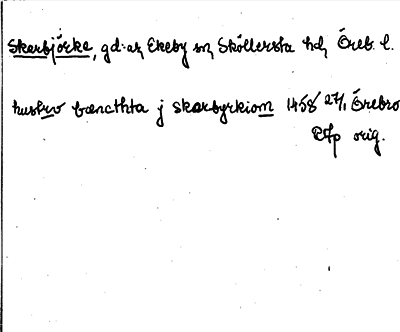 Skarbjörke, gd. av Ekeby sn, Sköllersta hd, Öreb. l.
hustrv bæncthta j skarbyrkiom 1458 27/1 Örebro
orig.